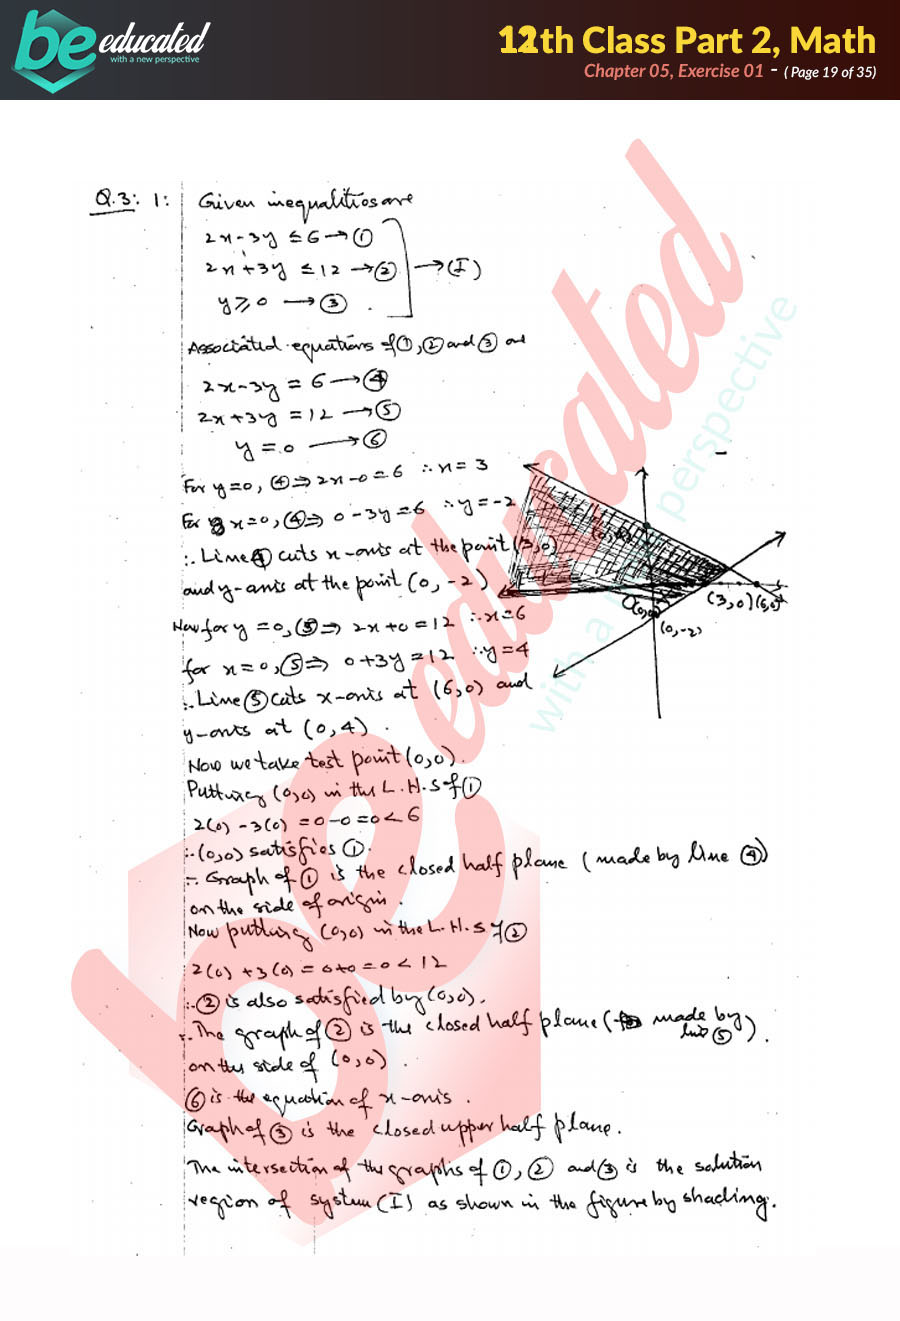 be educated
with a new perspective
12th Class Part 2, Math
Chapter 05, Exercise 01 - ( Page 19 of 35)
Q.3: 1: Given inequalities are
2x-3y ≤ 6 → ①
2x+3y ≤ 12 → ② → (I)
y ≥ 0 → ③ .
Associated equations of ①, ② and ③ are
2x-3y = 6 → ④
2x+3y = 12 → ⑤
y = 0 → ⑥
For y=0, ④ ⇒ 2x-0=6 ∴ x = 3
For x=0, ④ ⇒ 0-3y=6 ∴ y=-2
∴ Line ④ cuts x-axis at the point (3,0)
and y-axis at the point (0,-2)
Now for y=0, ⑤ ⇒ 2x+0=12 ∴ x=6
for x=0, ⑤ ⇒ 0+3y=12 ∴ y=4
∴ Line ⑤ cuts x-axis at (6,0) and
y-axis at (0,4) .
(3,0) (6,0)
(0,-2)
Now we take test point (0,0).
Putting (0,0) in the L.H.S of ①
2(0) -3(0) = 0-0 = 0 < 6
∴ (0,0) satisfies ①.
∴ Graph of ① is the closed half plane (made by line ④)
on the side of origin.
Now putting (0,0) in the L.H.S of ②
2(0) +3(0) = 0+0 = 0 < 12
∴ ② is also satisfied by (0,0).
∴ The graph of ② is the closed half plane (made by line ⑤).
on the side of (0,0) .
⑥ is the equation of x-axis.
Graph of ③ is the closed upper half plane.
The intersection of the graphs of ①, ② and ③ is the solution
region of system (I) as shown in the figure by shading.
be educated
with a new perspective